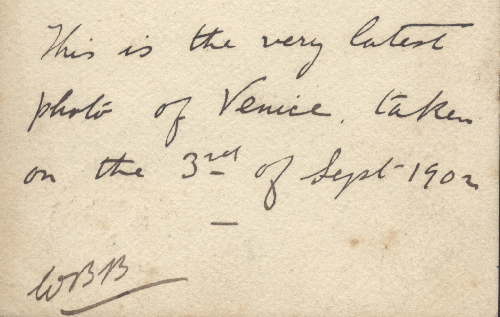 This is the very latest
photo of Venice. taken
on the 3rd of Sept 1902
WBB